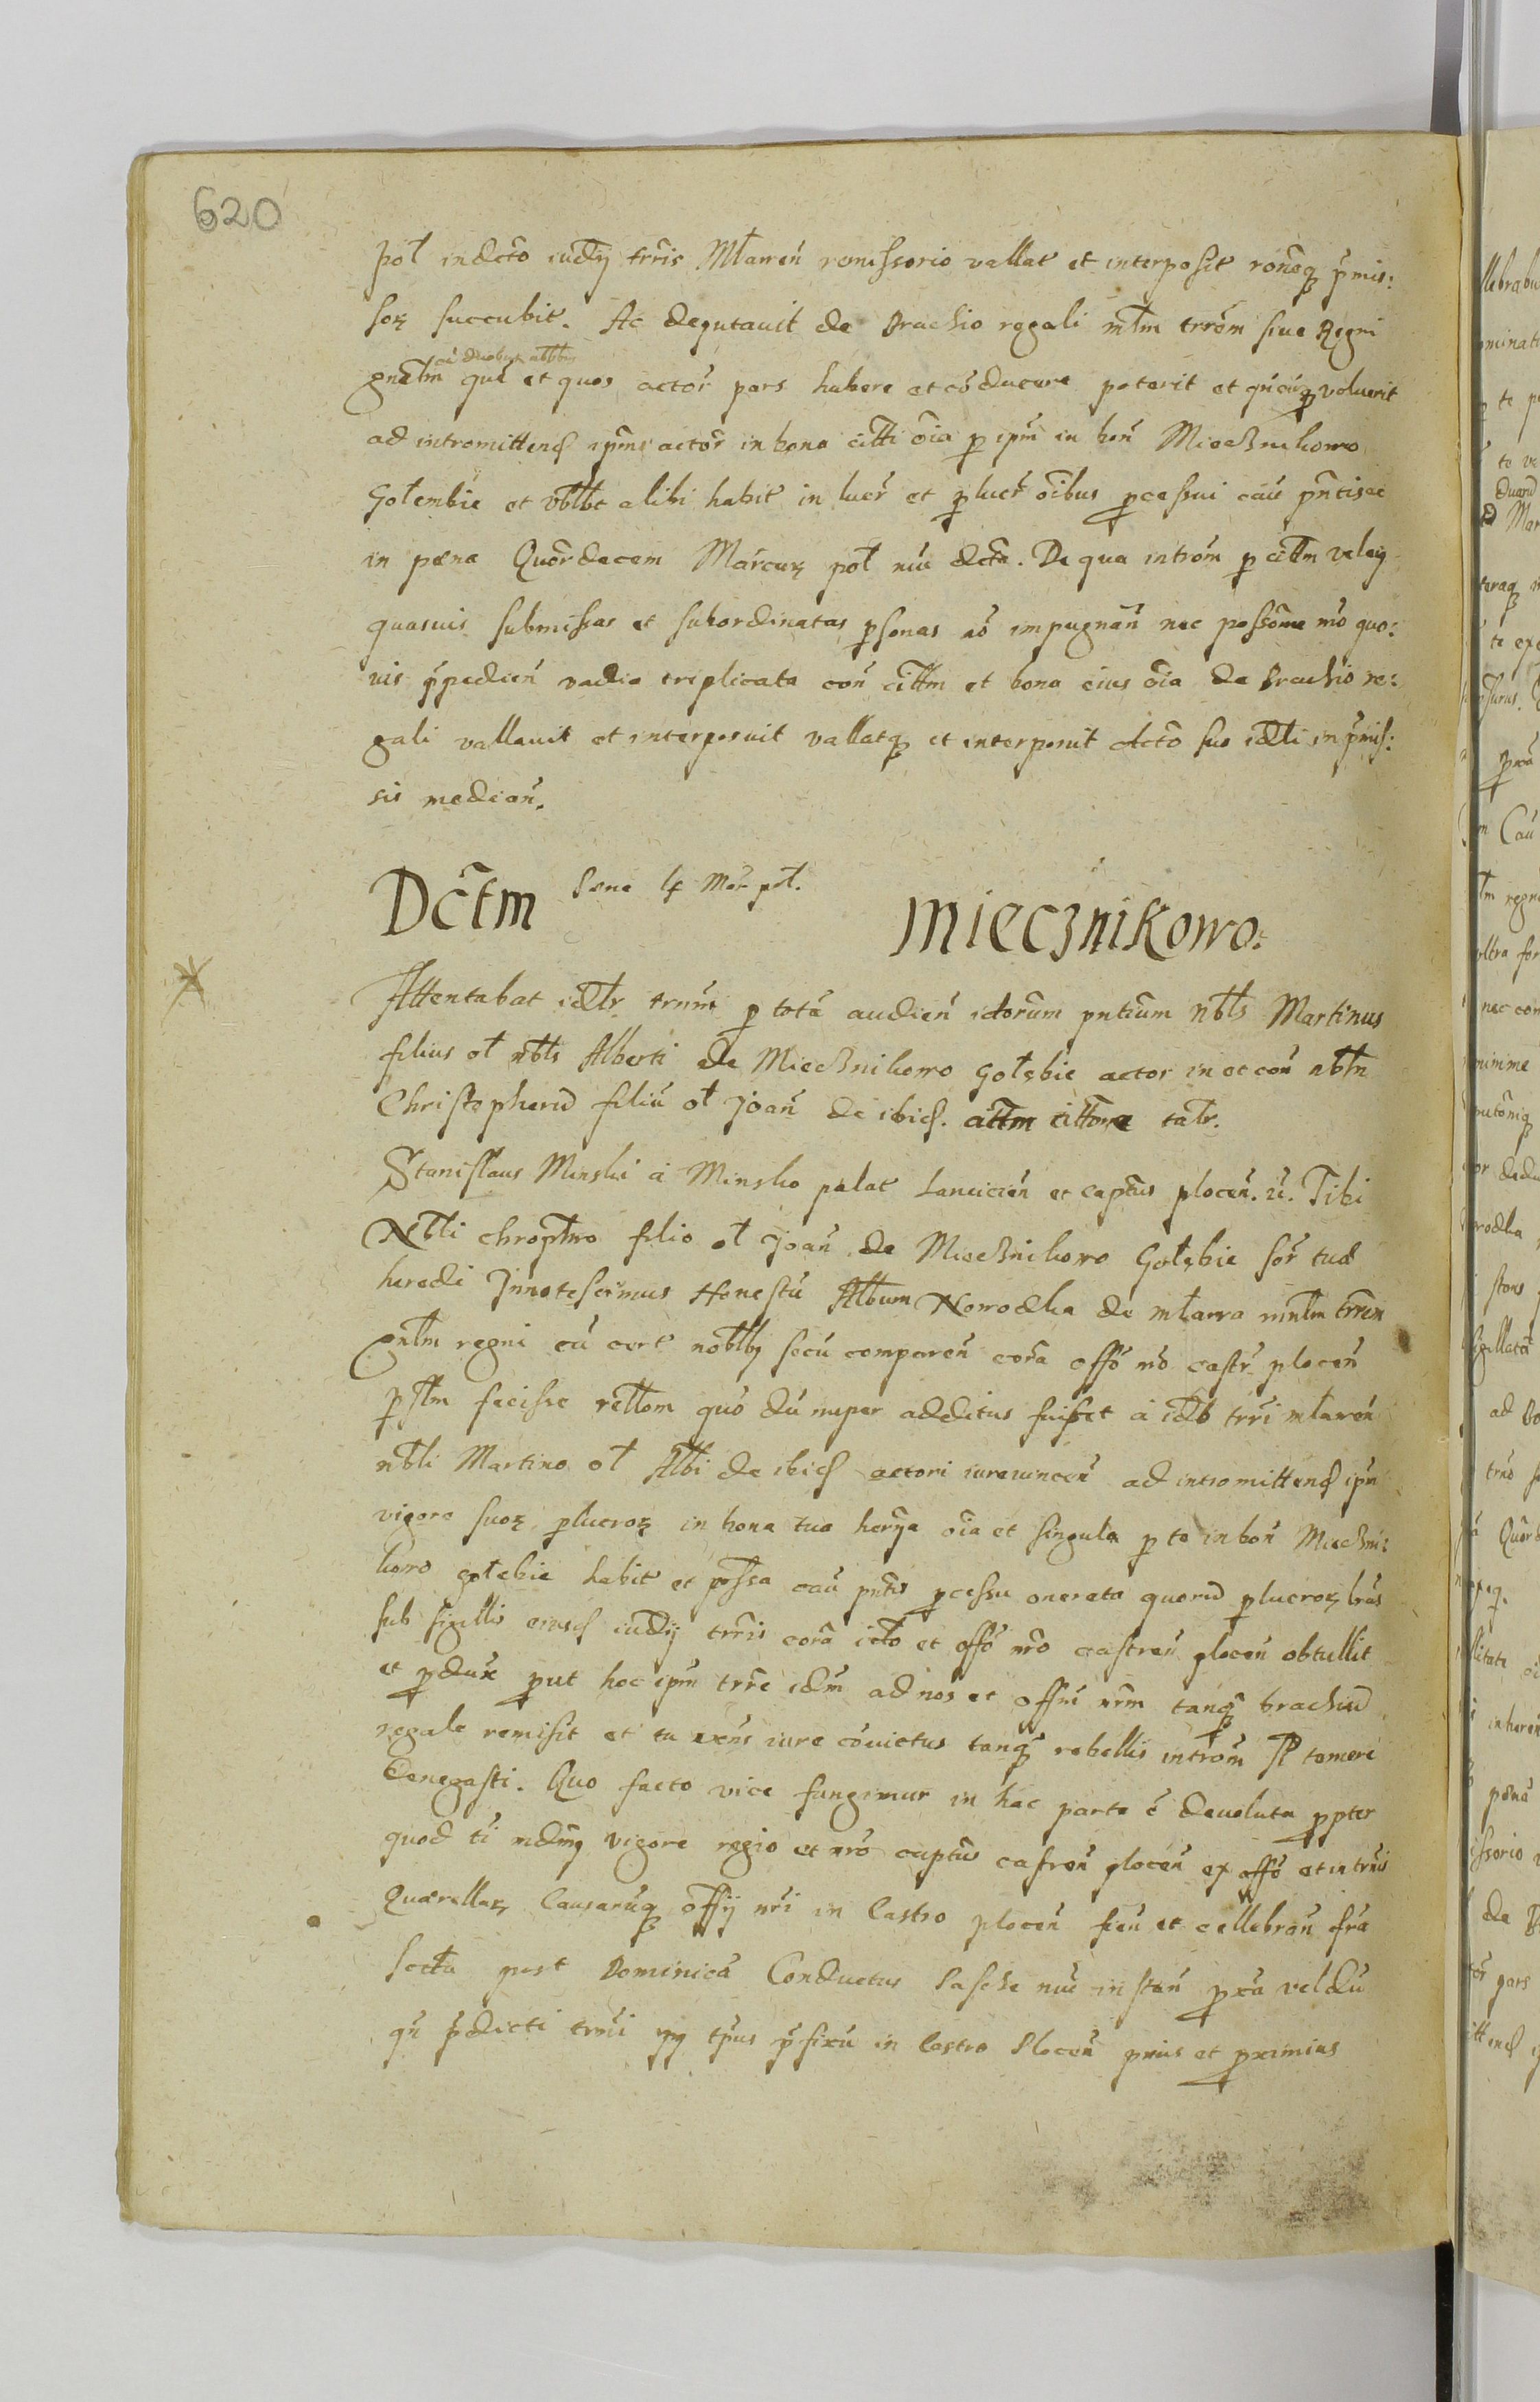 620
pol in dcto iudij trris Mlawen̄ remissorio vallat et interposit ronēq p̄mis:
soꝝ succubit. Ac deputavit de Brachio regali mtm̄ trrōm siue Regni
cū duobus nbtbus
gnatm̄ quē et quos actor̄ pars habere et cōducere poterit et qn̄cūq voluerit
ad intromittend̄ ipm̄ actor̄ in bona citti ōia p ipm̄ in bon̄ Miecznikowo
Gołembie et vbtbt alibi habit in lucr̄ et p lucr̄ ōibus pcessui cau̅ pn̄tis ac
in pœna Quordecem Marcaꝝ pol nūc dcta. De qua introm̄ p cittm vel eiq
quasuis submissas et subordinatas psonas nō impugnan̄ nec possōne mō quo:
uis p̄pedien̄ vadia triplicata con̄ cittm et bona eius ōia de Brachio re:
gali vallauit et interposuit vallatq et interponit dcto suo idtī in p̄mis:
sis median̄.
Dctm Pena 4 Mar pol. Miecznikowo:
Attentabat idtr trnm̄ p totā audien̄ idorum pntium nbts Martinus
filius ol nbts Alberti de Miecznikowo Gołębie actor in et con̄ nbtm
Christopherū filiū ol Joan̄ de ibid. attm cittōne talr.
Stanislaus Minski a Minsko palat Lancicien̄ et captus plocen̄. etc. Tibi
Nbti chroptro filio ol Joan̄ de Miecznikowo Gołębie sor̄ tuæ
heredi Innotescimus Honestū Album Nowodka de mława mntm trrem
gntm regni cū cert nobtby secū comparen̄ corā offo nro castr̄ plocen̄
pstm fecisse rettom quō dū nuper additus fuisset a idb trri mławen̄
nbti Martino ol Albi de ibid actori iureuincen̄ ad intromittend̄ ipm
vigore suoꝝ plucroꝝ in bona tua herija ōia et singula p te in bon̄ Mieczni:
kowo gołebie habit et possa cau̅ pntis pcessu onerata quorū plucroꝝ lras
sub sigillis eiusd̄ iudij trris corā icto et offo nro castren̄ plocen̄ obtullit
et pdux put hoc ipm trre idm ad nos et offm nrm tanq brachiū
regale remisit et tu vens iure cōuictus tanq rebellis introm temere
denegasti. Quo facto vice fungimur in hac parte ē deuoluta ppter
quod ti mdmq vigore regio et nro captus castren̄ plocen̄ ex offo et in trnis
Quærellaꝝ Causarūq offij nri in Castro plocen̄ fien̄ et cellebran̄ fra
secta post Dominicā Conductus Pasche nūc instan̄ pxa vel dū
qn̄ p̄dicti trmi ipq tpus p̄fixū in Castro Plocen̄ prius et pximius